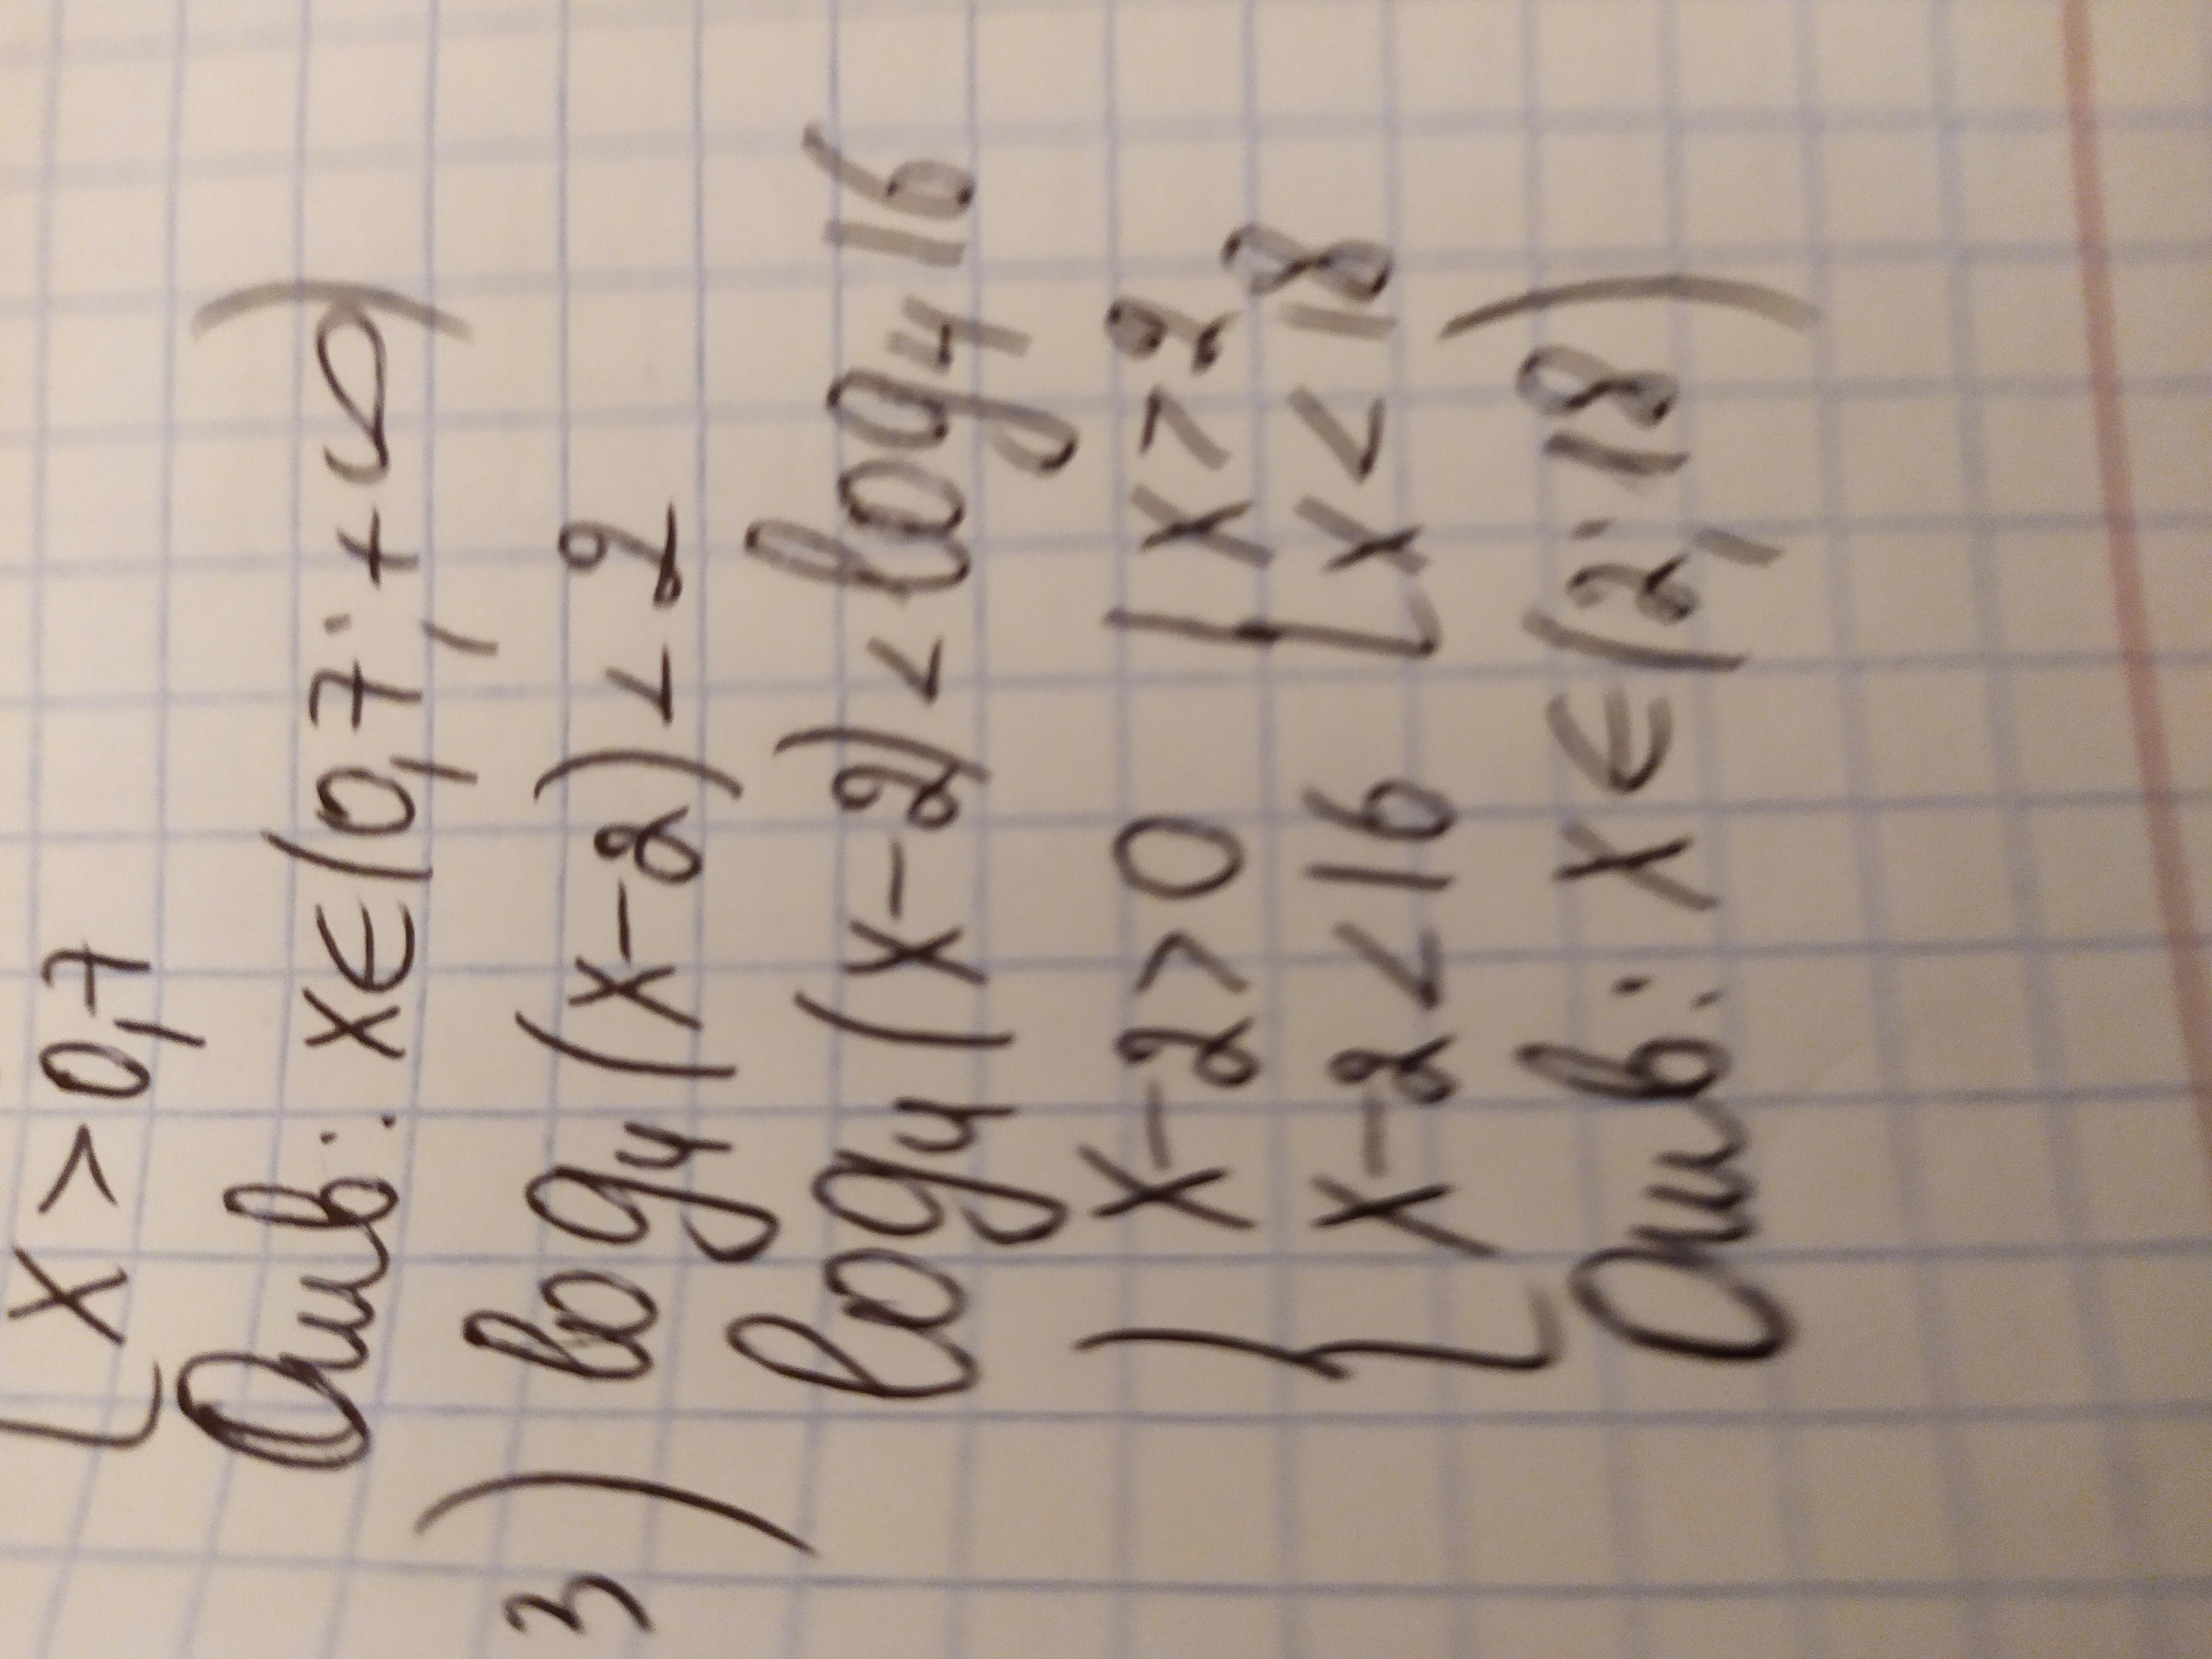 x > 0,7
Отв: x ∈ (0,7; +∞)
3) log₄(x-2) < 2
log₄(x-2) < log₄16
{ x-2 > 0 { x > 2
{ x-2 < 16 { x < 18
Отв: x ∈ (2; 18)